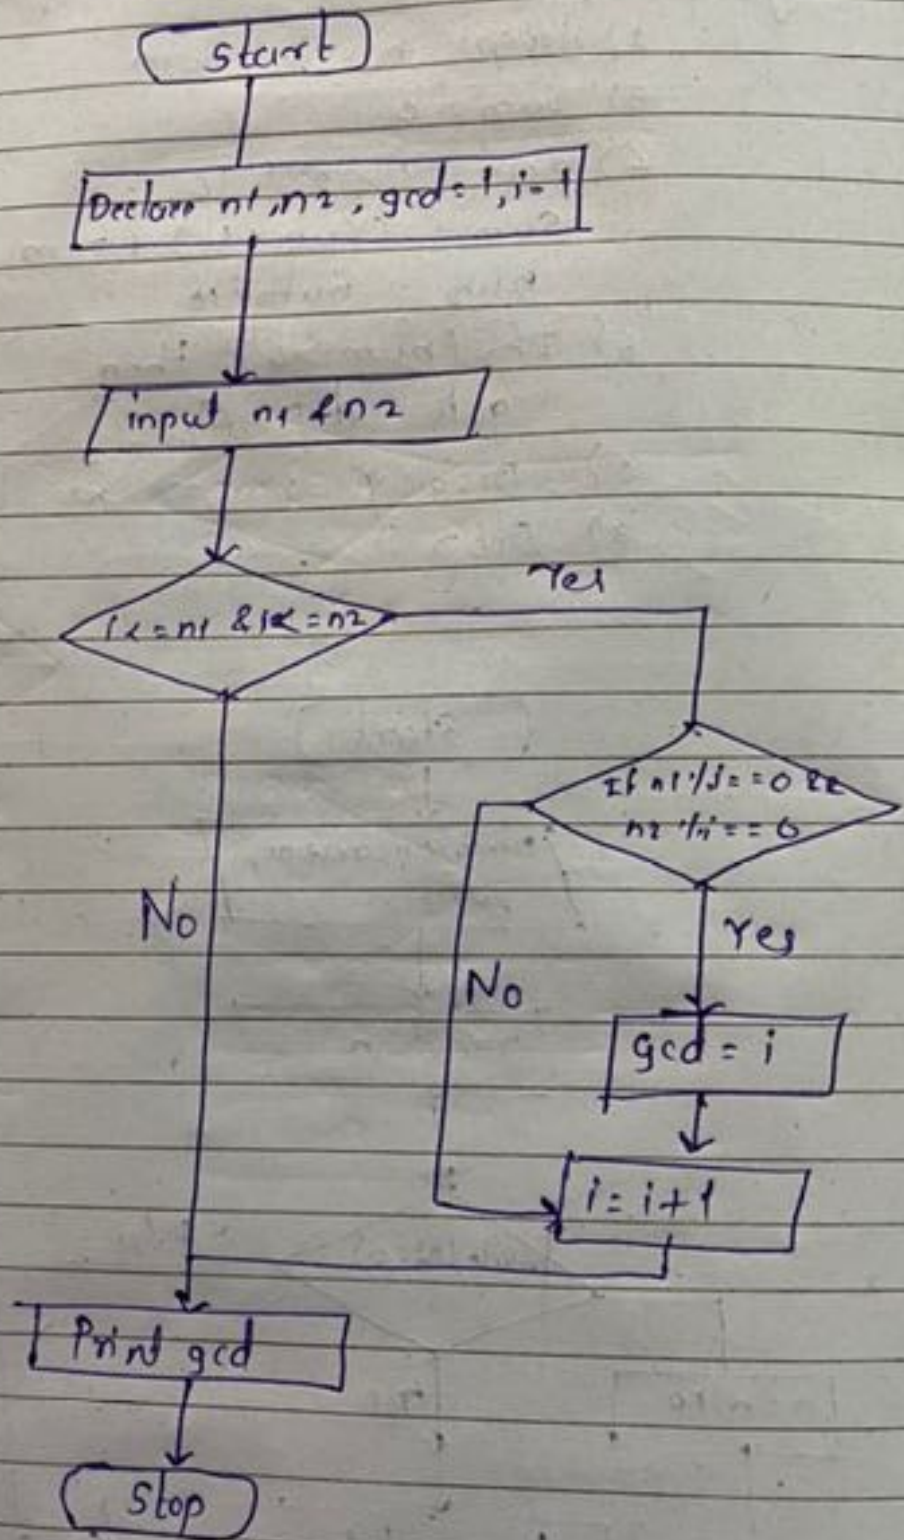 Start
Declare n1, n2, gcd = 1, i = 1
input n1 & n2
i<=n1 & i<=n2
Yes
If n1 % i == 0 &&
n2 % i == 0
No
Yes
No
gcd = i
i = i + 1
Print gcd
Stop